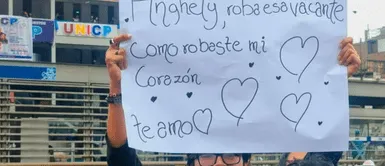 UNICP
Anghely, roba esa vacante
como robaste mi
corazón
te amo